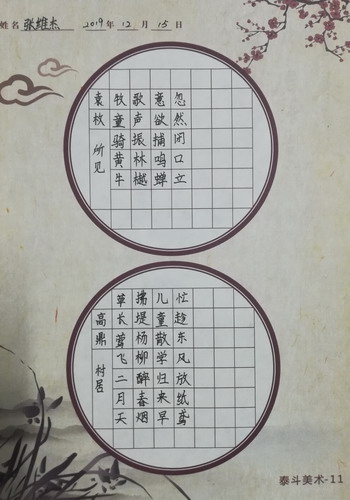 姓名 张维杰 2019年12月15日
袁枚 所见
牧童骑黄牛
歌声振林樾
意欲捕鸣蝉
忽然闭口立
高鼎 村居
草长莺飞二月天
拂堤杨柳醉春烟
儿童散学归来早
忙趁东风放纸鸢
泰斗美术-11